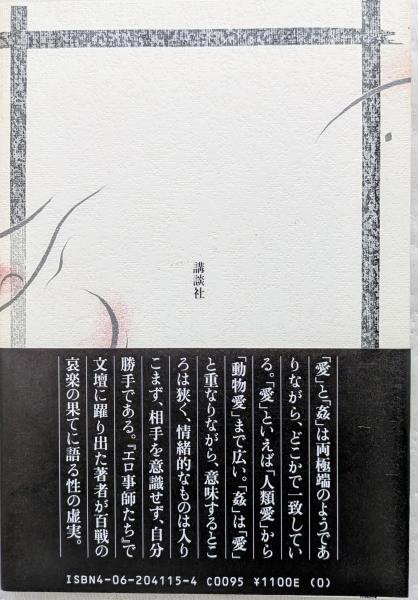 講談社
「愛」と「姦」は両極端のようであ
りながら、どこかで一致してい
る。「愛」といえば「人類愛」から
「動物愛」まで広い。「姦」は「愛」
と重なりながら、意味するとこ
ろは狭く、情緒的なものは入り
こまず、相手を意識せず、自分
勝手である。『エロ事師たち』で
文壇に躍り出た著者が百戦の
哀楽の果てに語る性の虚実。
ISBN4-06-204115-4 C0095 ¥1100E (0)